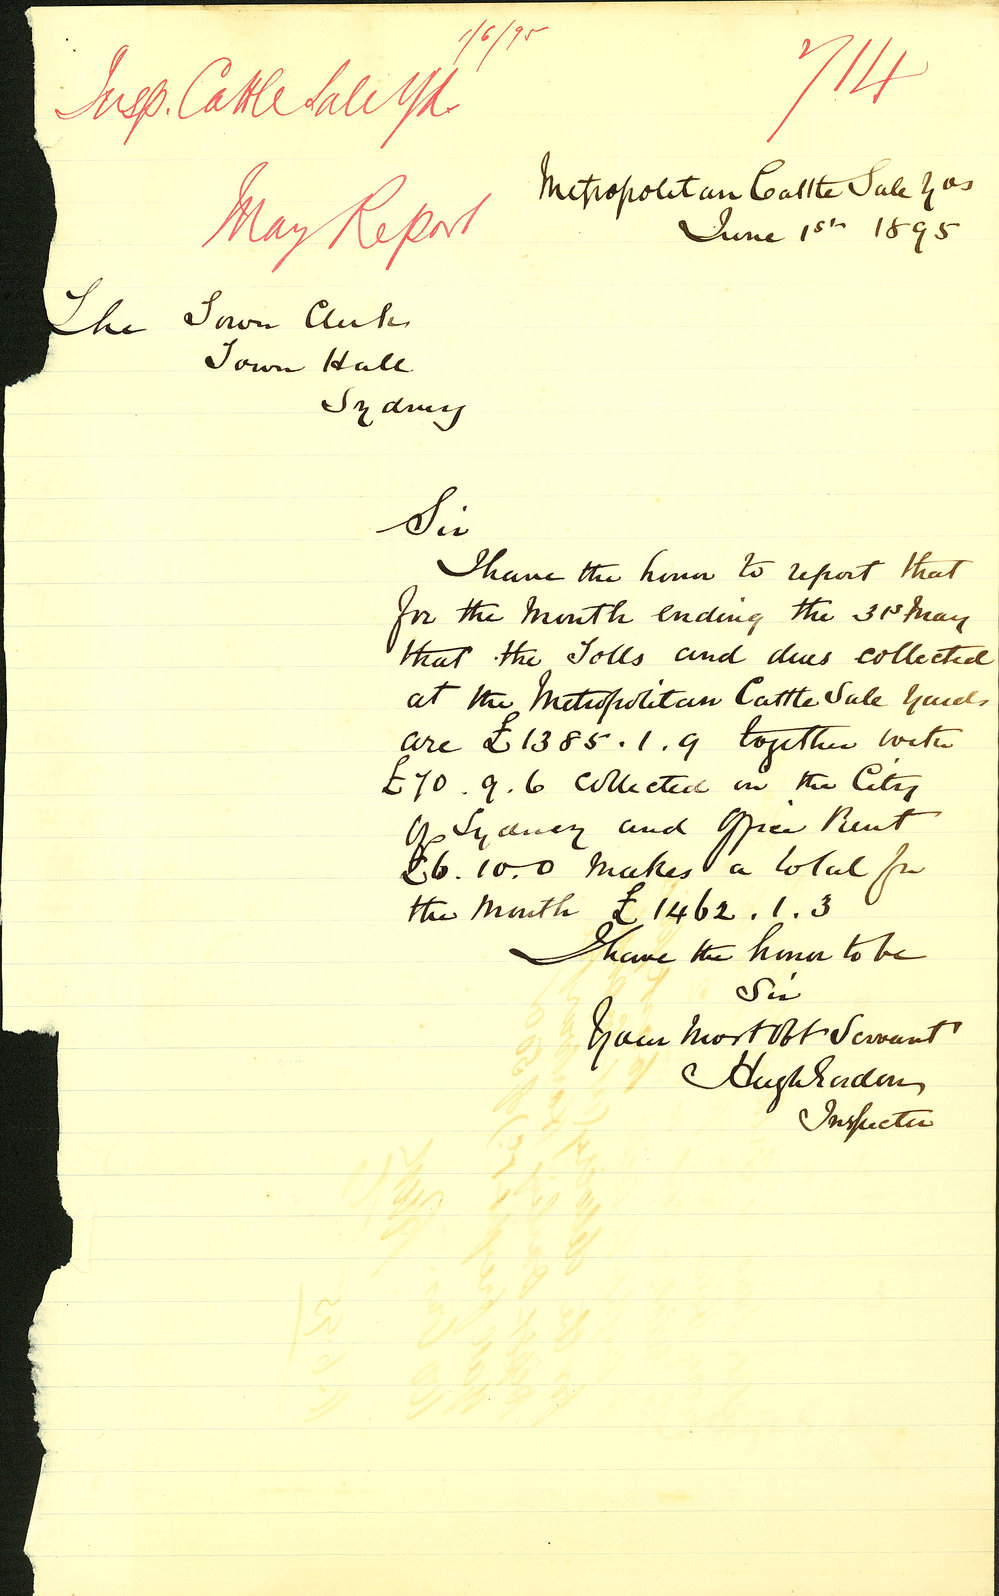 1/6/95
Insp. Cattle Sale Yd.
714
May Report
Metropolitan Cattle Sale Yds
June 1st 1895
The Town Clerk
Town Hall
Sydney
Sir
I have the honor to report that
for the Month ending the 31st May
that the Tolls and dues collected
at the Metropolitan Cattle Sale Yards
are £1385.1.9 together with
£70.9.6 collected in the City
of Sydney and Office Rent
£6.10.0 makes a total for
the Month £1462.1.3
I have the honor to be
Sir
Your Most Obt Servant
Hugh Gordon
Inspector